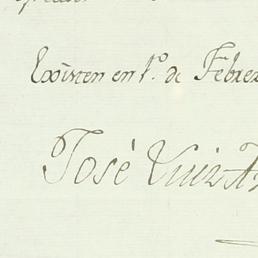 Existen en 1.º de Febre
Josè Ruiz